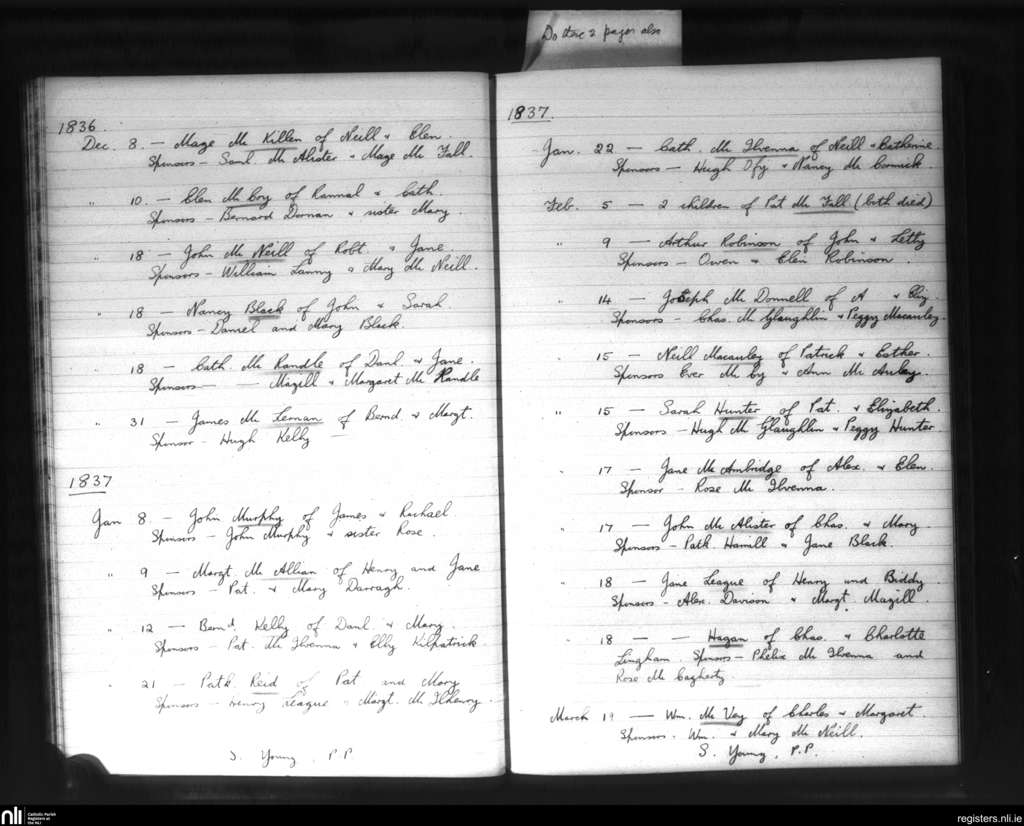 Do these 2 pages also
1836.
Dec. 8. — Mage Mc Killen of Neill & Elen.
Sponsors - Saml Mc Alister & Mage Mc Fall.
" 10. — Elen Mc Coy of Rannal & Cath.
Sponsors - Bernard Dornan & sister Mary.
" 18 — John Mc Neill of Robt. & Jane.
Sponsors - William Lanny & Mary Mc Neill.
" 18 — Nancy Black of John & Sarah.
Sponsors - Daniel and Mary Black.
" 18 — Cath. Mc Randle of Danl. & Jane.
Sponsors — — Magill & Margaret Mc Randle
" 31 — James Mc Lernan of Bernd & Margt.
Sponsor - Hugh Kelly —
1837
Jan 8. — John Murphy of James & Rachael
Sponsors - John Murphy & sister Rose.
" 9 — Margt. Mc Allian of Henry and Jane
Sponsors - Pat. & Mary Darragh.
" 12 — Bernd. Kelly of Danl. & Mary.
Sponsors - Pat. Mc Ilvenna & Elly Kilpatrick.
" 21 — Patk Reid of Pat and Mary
Sponsors - Henry League & Margt. Mc IlHenry.
S. Young, P P
1837.
Jan. 22 — Cath. Mc Ilvenna of Neill & Catherine.
Sponsors — Hugh & Nancy Mc Cormick
Feb. 5 — 2 children of Pat Mc Fall (both died)
" 9 — Arthur Robinson of John & Letty
Sponsors - Owen & Elen Robinson
" 14 — Joseph Mc Donnell of A & Eliz.
Sponsors - Chas. Mc Glaughlin & Peggy Macauley.
" 15 — Neill Macauley of Patrick & Esther.
Sponsors Ever Mc Coy & Ann Mc Auley.
" 15 — Sarah Hunter of Pat. & Elizabeth.
Sponsors - Hugh Mc Glaughlin & Peggy Hunter.
" 17 — Jane Mc Ambridge of Alex. & Elen.
Sponsor - Rose Mc Ilvenna.
" 17 — John Mc Alister of Chas. & Mary.
Sponsors - Patk Hamill & Jane Black.
" 18 — Jane League of Henry and Biddy.
Sponsors - Alex. Davison & Margt. Magill.
" 18 — — Hagan of Chas. & Charlotte
Lingham Sponsors - Phelix Mc Ilvenna and
Rose Mc Cagherty.
March 19 — Wm. Mc Vey of Charles & Margaret.
Sponsors. Wm. & Mary Mc Neill.
S. Young, P.P.
nli Catholic Parish
Registers at
the NLI
registers.nli.ie